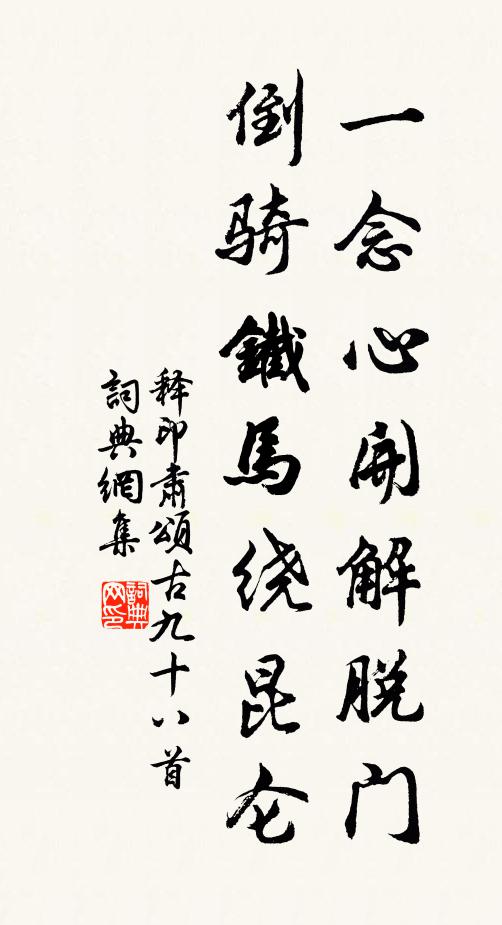 一念心开解脱门
倒骑鐵馬绕昆仑
释印肃頌古九十八首
詞典網集
詞典网印